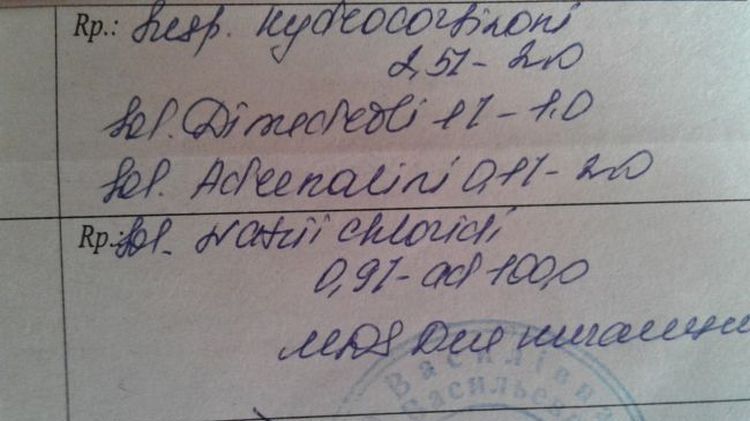 Rp.: Susp. Hydrocortizoni
2,5% - 2.0
Sol. Dimedroli 1% - 1.0
Sol. Adrenalini 0,1% - 2.0
Rp.: Sol. Natrii chloridi
0,9% - ad 100,0
MDS Для ингаляции
Василівна
Васильев